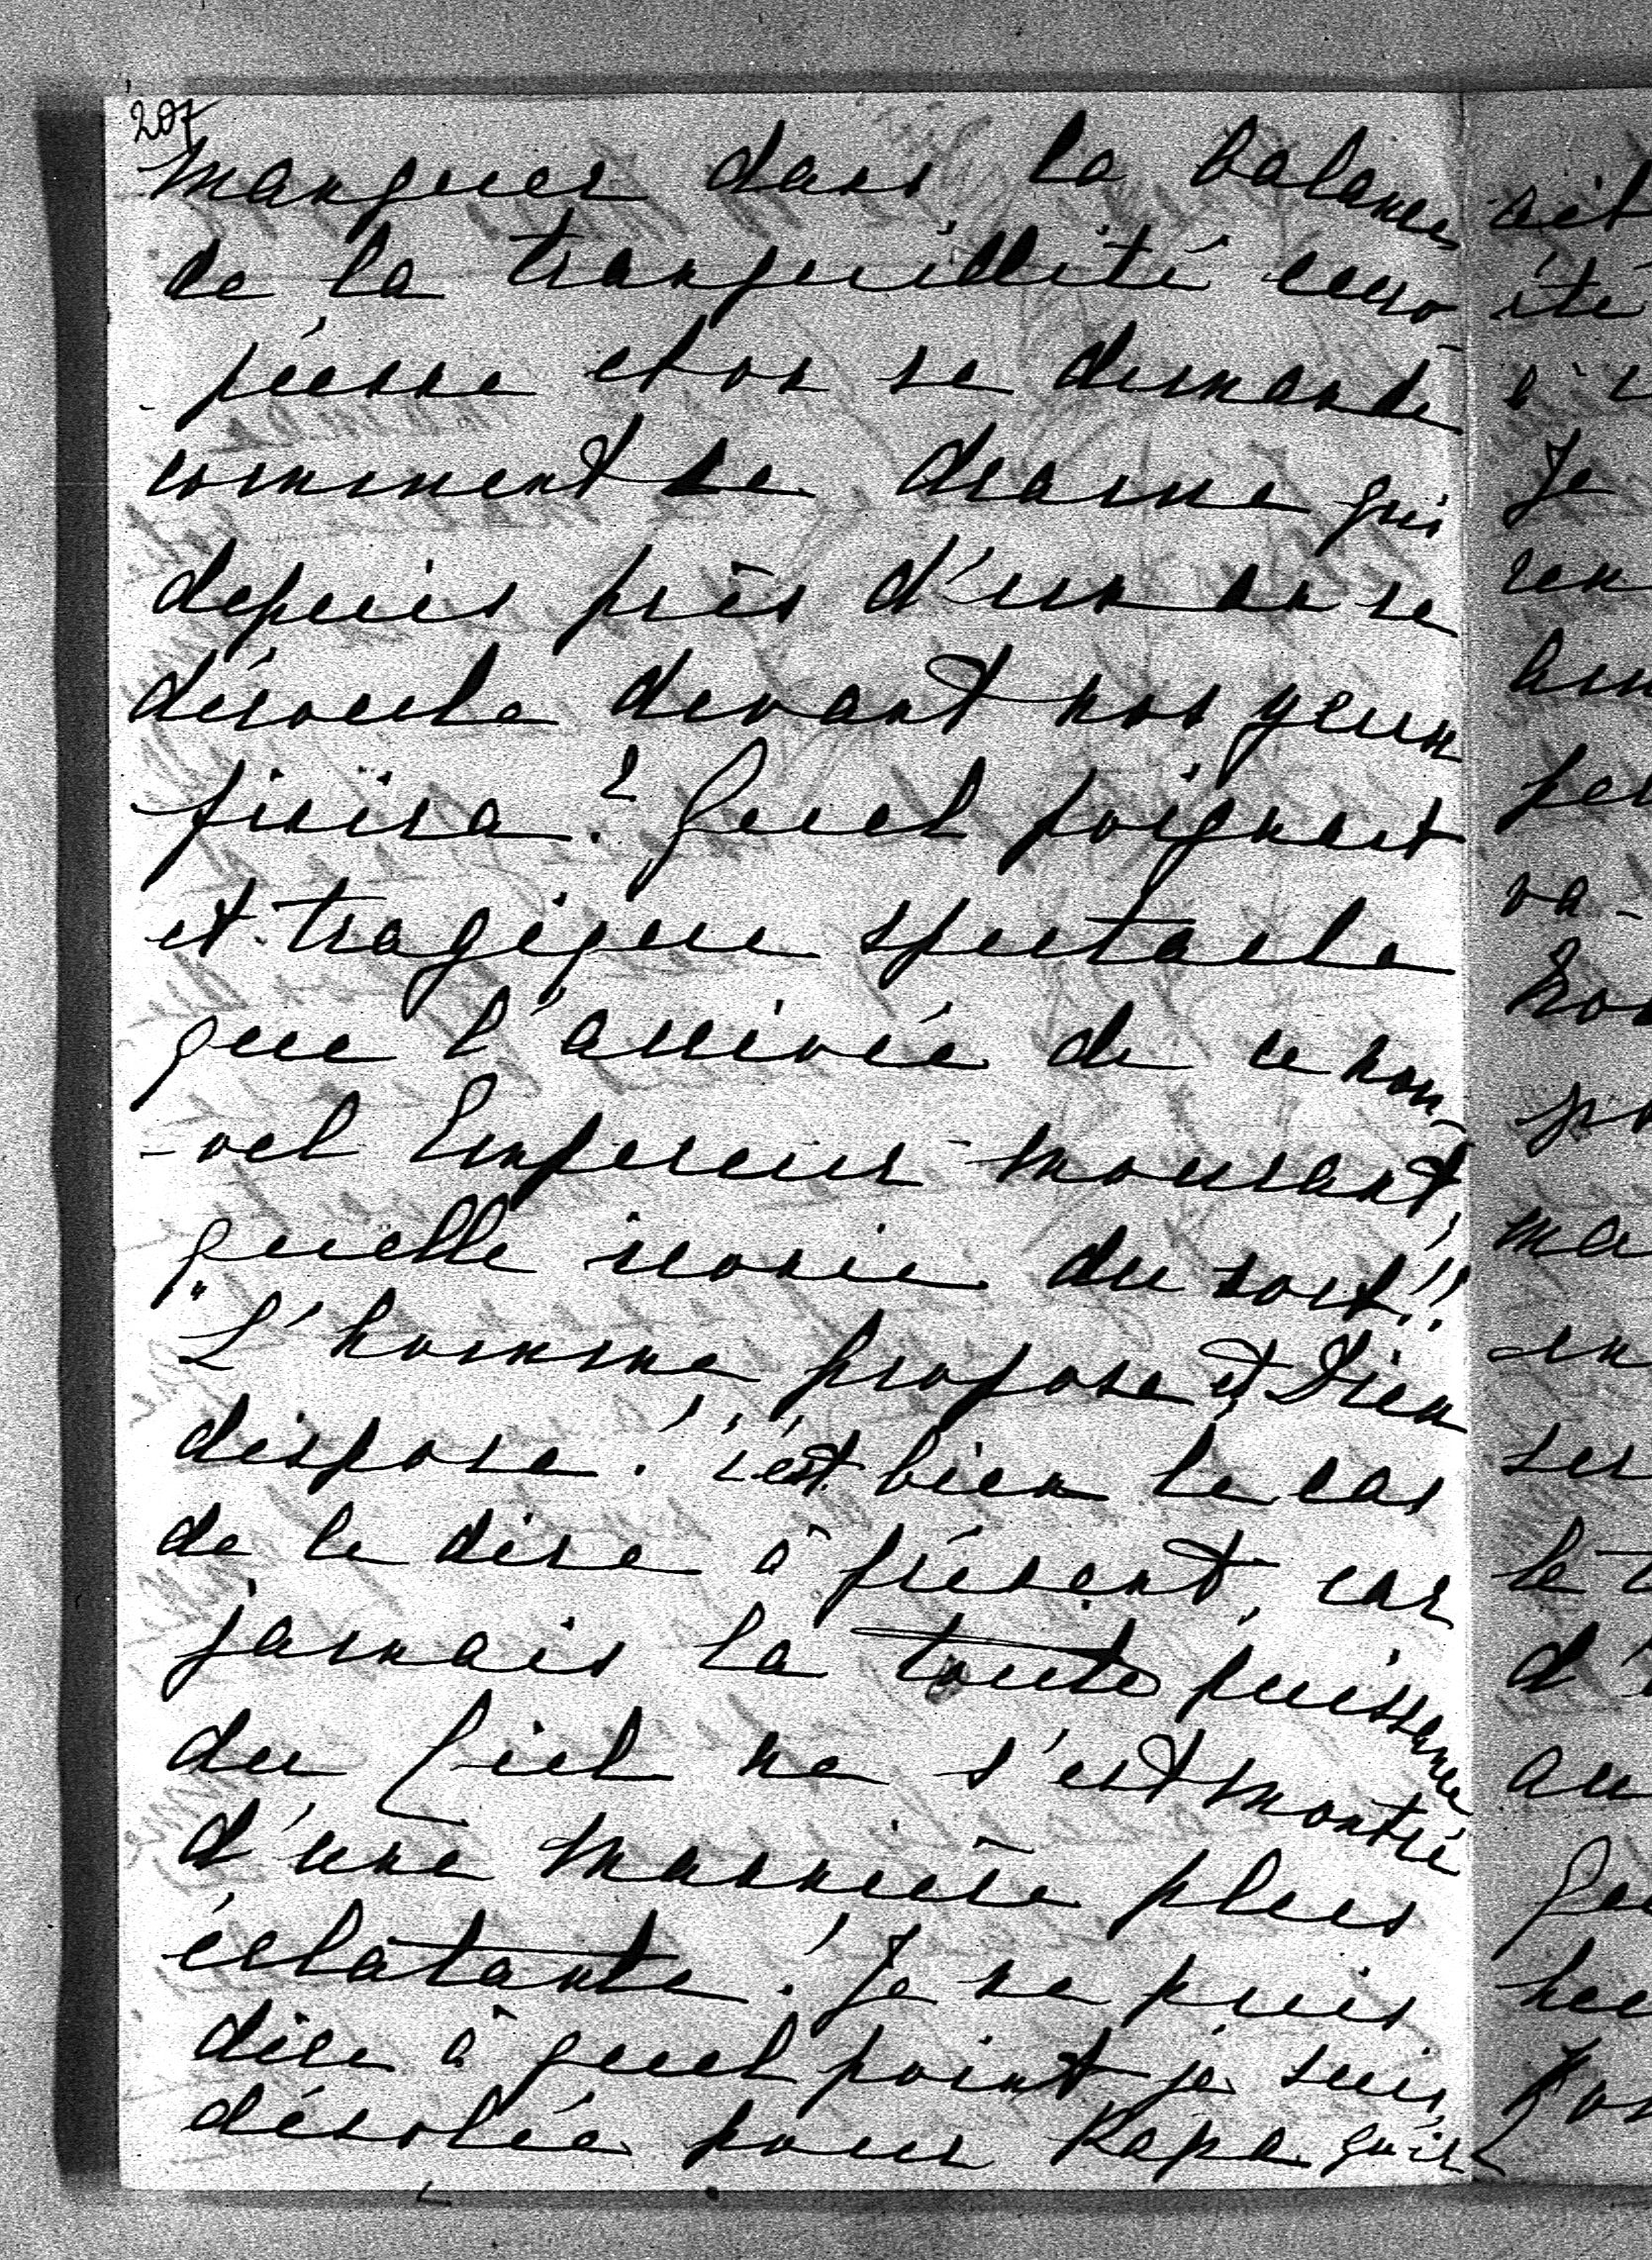 207
manquer dans la balance
de la tranquillité euro
péenne et on se demande
comment le drame qui
depuis près d'un an se
déroule devant nos yeux
finira? Quel poignant
et tragique spectacle
que l'arrivée de ce nou-
-vel Empereur mourant,
quelle ironie du sort!!
"L'homme propose et Dieu
dispose!" c'est bien le cas
de le dire à présent, car
jamais la toute puissance
du Ciel ne s'est montré
d'une manière plus
éclatante! Je ne puis
dire à quel point je suis
désolée pour Papa qu'il